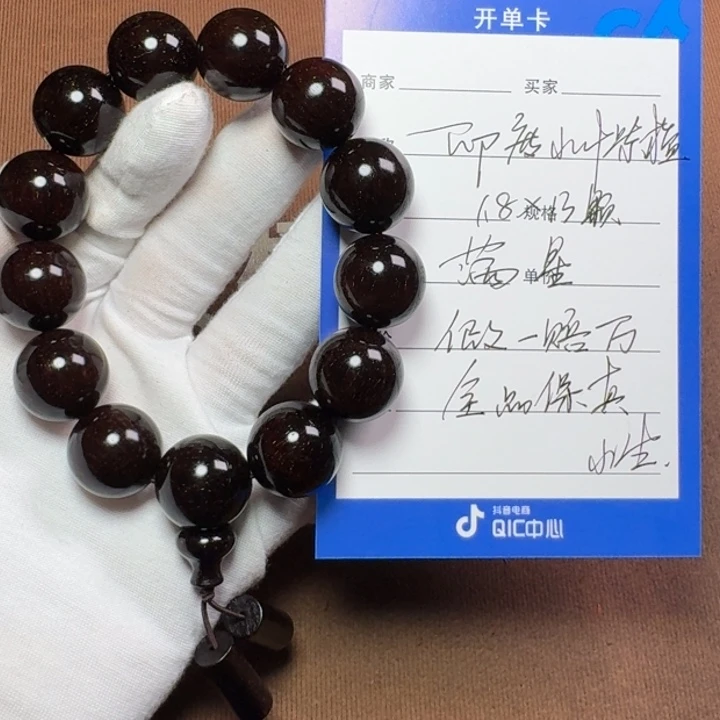 开单卡
商家 买家
印度小叶紫檀
18×13颗
规格
满星
单
假一赔万
全品保真
抖音电商
QIC中心